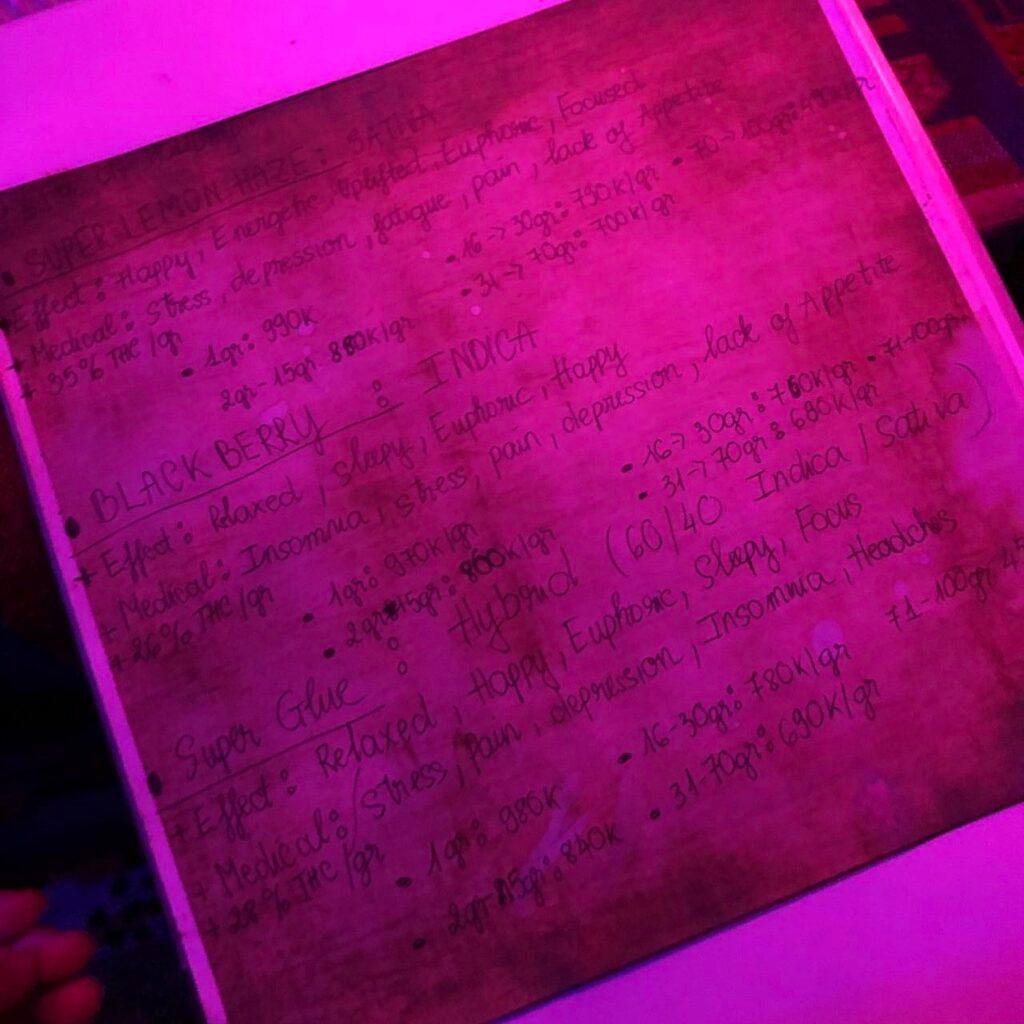 • SUPER LEMON HAZE : SATIVA
Effect : Happy, Energetic, Uplifted, Euphoric, Focused
+ Medical : Stress, depression, fatigue, pain, lack of Appetite
+ 35% THC /gr
• 1gr : 990K
2gr-15gr: 880K/gr
• 16 -> 30gr : 790K/gr
• 31 -> 70gr : 700K/gr
• 70 -> 100gr :
• BLACK BERRY : INDICA
+ Effect : Relaxed, sleepy, Euphoric, Happy
+ Medical : Insomnia, stress, pain, depression, lack of Appetite
+ 26% THC /gr
• 1gr : 970K/gr
• 2gr-15gr : 800K/gr
• 16 -> 30gr : 760K/gr
• 31 -> 70gr : 680K/gr
• 71-100gr
• Super Glue : Hybrid (60/40 Indica / Sativa)
+ Effect : Relaxed, Happy, Euphoric, Sleepy, Focus
+ Medical : Stress, Pain, depression, Insomnia, Headaches
+ 28% THC /gr
• 1gr : 980K
• 2gr-15gr : 840K
• 16-30gr : 780K/gr
• 31-70gr : 690K/gr
71-100gr